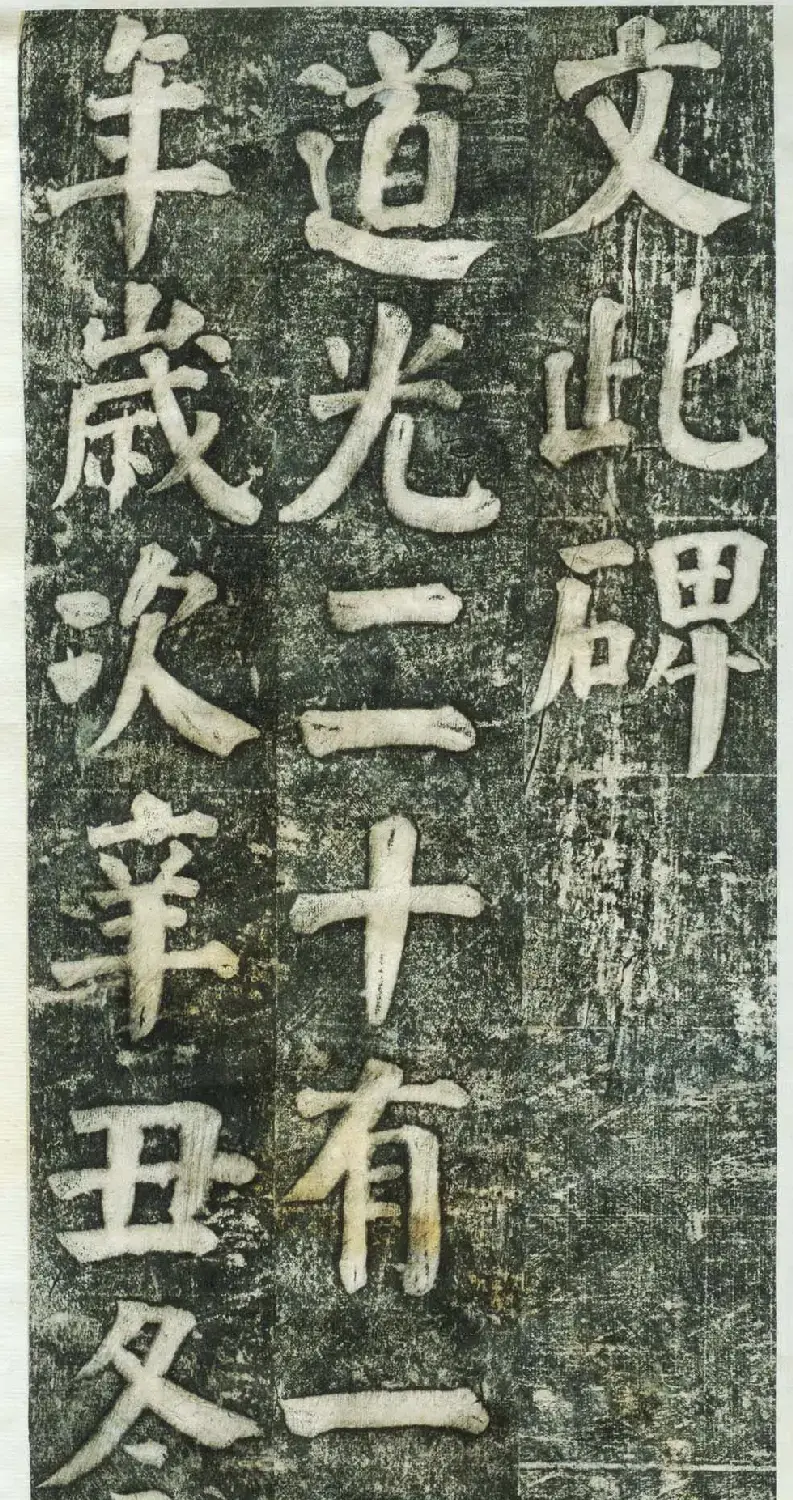 文此碑
道光二十有一
年歲次辛丑冬